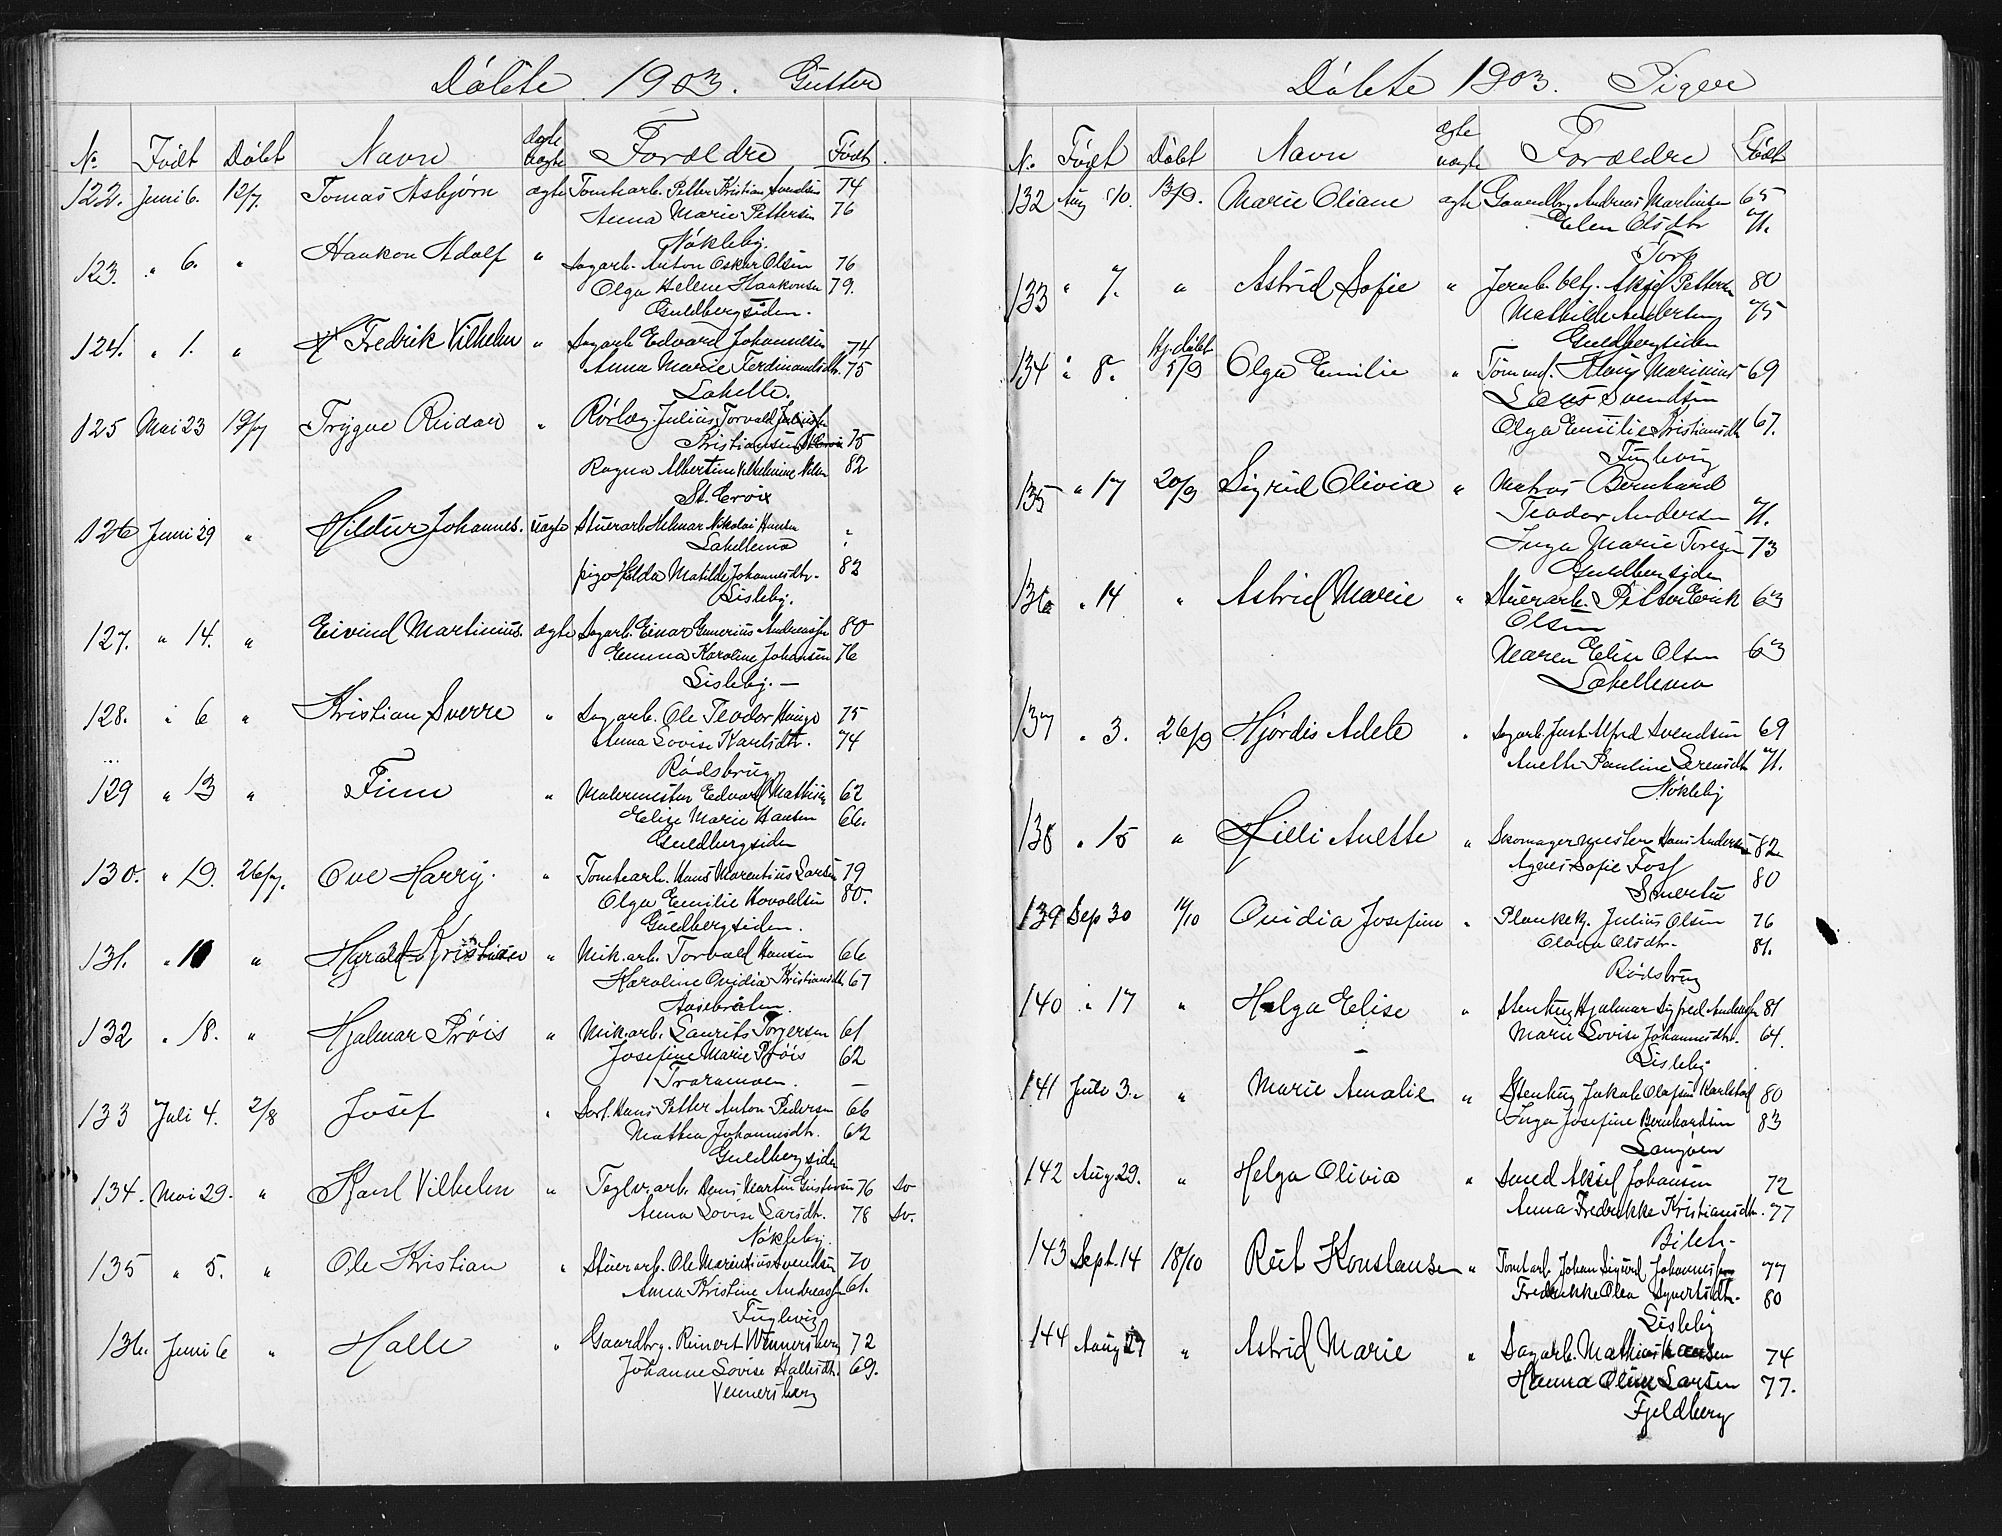 Døbte 1903. Gutter
No Født Døbt Navn ægte uægte Forældre Født.
122. Juni 6. 12/7. Tomas Asbjørn ægte Tomtearb. Petter Kristian Svendsen 74
Anna Marie Pettersen 76
Nökleby.
123. " 6. " Haakon Adolf " Sagarb. Anton Oskar Olsen 76
Olga Helene Haakonsen 79.
Guldbergsiden.
124. " 1. " Fredrik Vilhelm " Sagarb. Edvard Johannesen 74
Anna Marie Ferdinandsdtr. 75
Labelle.
125 Mai 23 19/7 Trygve Reidar " Rörlæg. Julius Torvald
Kristiansen 75
Ragna Albertine Vilhelmine 82
St. Croix
126 Juni 29 " Hildur Johannes. uægte Stuerarb. Helmar Nikolai Hansen "
Labellemo "
pige Hilda Matilde Johannesdtr. 82
Lisleby.
127. " 14. " Eivind Martinius. ægte Sagarb. Einar Gunerius Andreassen 80
Emma Karoline Johansen 76
Lisleby. —
128. " 6 " Kristian Sverre " Sagarb. Ole Teodor 75
Anna Lovise Karlsdtr. 74
Rødsbrug
129 " 13 " Finn " Malermester Edvard Mathisen 62
Elise Marie Hansen 66.
Guldbergsiden
130. " 19. 26/7. Ove Harry. " Tomtearb. Hans Marentius Larsen 79
Olga Emilie 80.
Guldbergsiden.
131. " " Harald Kristian " Mek.arb. Torvald Hansen 66
Karoline Ovidia Kristiansdtr. 67
132 " 18. " Hjalmar Prøis " Mek.arb. Laurits Torgersen 61
Josefine Marie Prøis 62
Traramoen. —
133 Juli 4. 2/8 Josef " Hans Petter Anton Pedersen 66
Mathea Johannesdtr. 62
Guldbergsiden
134. Mai 29. " Karl Vilhelm " Teglv.arb. Hans Martin Gustavsen 76 Sv
Anna Lovise Larsdtr. 78 Sv.
Nökleby.
135 " 5. " Ole Kristian " Stuerarb. Ole Marentius Svendsen 70
Anna Kristine Andreassen 61.
Fuglevig
136. Juni 6 " Halle " Gaardbrg. Reinert Wennersberg 72
Johanne Lovise Hallesdtr. 69.
Vennersberg
Døbte 1903. Piger
No. Født Døbt Navn ægte uægte Forældre Født
132 Aug 13/9. Marie Oliane ægte Gaardbrg. Andreas Martinsen 65
Elen Olsdtr 71.
Torp
133 " 7. " Astrid Sofie " Jernb. betj. Aksel Pettersen 80
Mathilde Andersen 75
Guldbergsiden
134 " 8. Hj.døbt 5/9 Olga Emilie " Marinius 69
Laus Svendsen
Olga Emilie Kristiansdtr 67.
Fuglevig
135 " 17 20/9 Sigrid Olivia " Matros Bernhard
Teodor Andersen 71.
Inga Marie 73
Guldbergsiden
136 " 14 " Astrid Marie " Stuerarb. Petter Erik 63
Olsen
Maren Elise Olsen 63
Labellemo
137 " 3. 26/9 Hjørdis Adele " Sagarb. Just Alfred Svendsen 69
Anette Pauline Sørensdtr 71.
Nökleby
138 " 15 " Hilli Anette " Skomagermester Hans Andersen 82
Agnes Sofie Foss 80
Smertu
139 Sep 30 11/10 Ovidia Josefine " Plankekj. Julius Olsen 76
Olava Olsdtr. 81.
Rødsbrug
140 " 17 " Helga Elise " Stenhug Hjalmar Sigfred Andreassen 81
Marie Lovise Johannesdtr. 64.
Lisleby
141 Juli 3. " Marie Amalie " Stenhug Jakob Olafsen Karlstad 80
Inga Josefine Bernhardsen 83
Langøen
142 Aug 29. " Helga Olivia " Smed Aksel Johansen 72
Anna Fredrikke Kristiansdtr. 77
143 Sept. 14 18/10 Rut Konstanse " Tomtarb. Johan Sigurd Johannessen 77
Fredrikke Olea Syvertsdtr. 80
Lisleby
144 Aug 27 " Astrid Marie " Sagarb. Mathias Hansen 74
Hanna Oline Larsen 77.
Fjeldberg